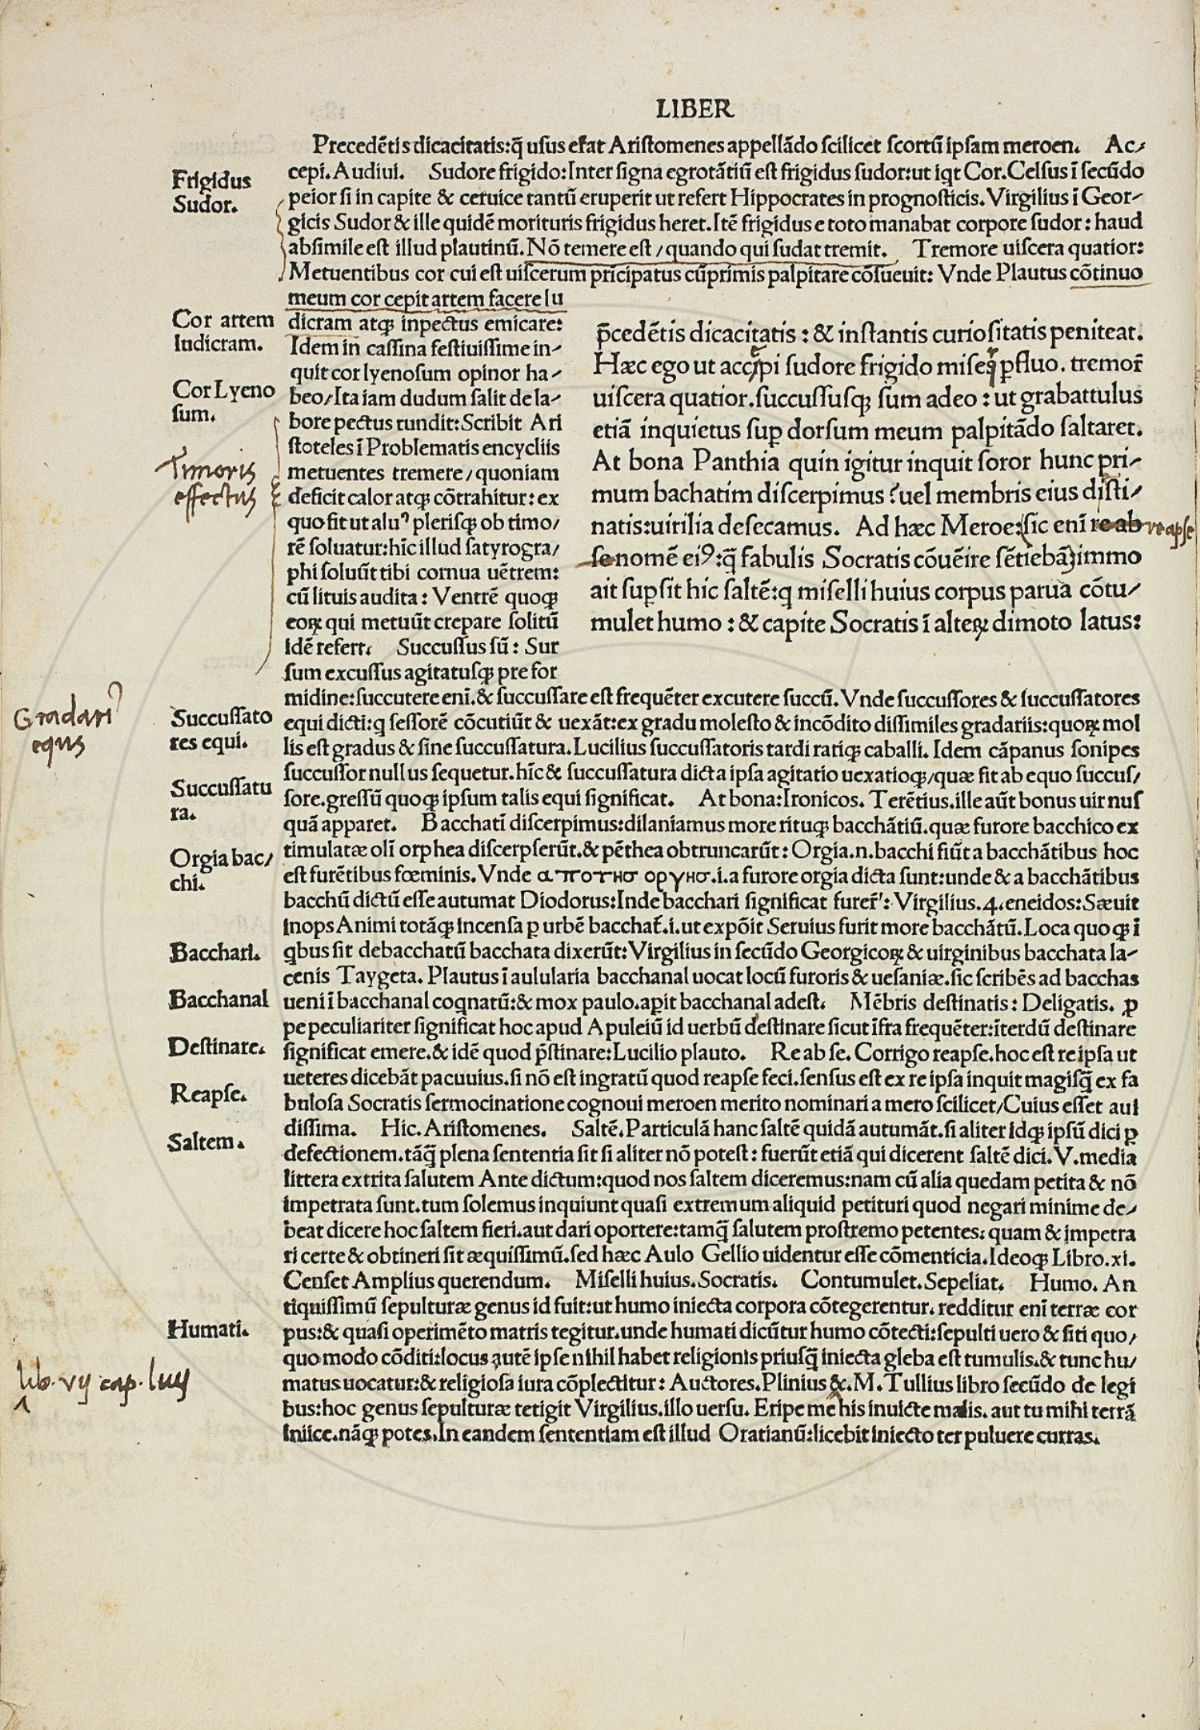 LIBER
Precedētis dicacitatis:q̄ usus erat Aristomenes appellādo scilicet scortū ipsam meroen. Ac-
cepi. Audiui. Sudore frigido: Inter signa egrotātiū est frigidus sudor: ut iqt Cor. Celsus ī secūdo
peior si in capite & ceruice tantū eruperit ut refert Hippocrates in prognosticis. Virgilius ī Geor-
gicis Sudor & ille quidē morituris frigidus heret. Itē frigidus e toto manabat corpore sudor: haud
absimile est illud plautinū. Nō temere est/quando qui sudat tremit. Tremore uiscera quatior:
Metuentibus cor cui est uiscerum prīcipatus cūprimis palpitare cōsueuit: Vnde Plautus cōtinuo
meum cor cepit artem facere lu
dicram atqꝫ inpectus emicare:
Idem in cassina festiuissime in-
quit cor lyenosum opinor ha-
beo/Ita iam dudum salit de la-
bore pectus tundit: Scribit Ari
stoteles ī Problematis encycliis
metuentes tremere/quoniam
deficit calor atqꝫ cōtrahitur: ex
quo fit ut aluꝰ plerisqꝫ ob timo/
rē soluatur: hīc illud satyrogra/
phi soluūt tibi cornua uētrem:
cū lituis audita: Ventrē quoqꝫ
eoꝝ qui metuūt crepare solitū
Idē refert. Succussus sū: Sur
sum excussus agitatusqꝫ pre for
midine: succutere enī. & succussare est frequēter excutere succū. Vnde succussores & succussatores
equi dicti: q sessorē cōcutiūt & uexāt: ex gradu molesto & incōdito dissimiles gradariis: quoꝝ mol
lis est gradus & sine succussatura. Lucilius succussatoris tardi ratiqꝫ caballi. Idem cāpanus sonipes
succussor nullus sequetur. hīc & succussatura dicta ipsa agitatio uexatioqꝫ/quæ fit ab equo succus/
sore. gressū quoqꝫ ipsum talis equi significat. At bona: Ironicos. Terētius. ille aūt bonus uir nus
quā apparet. Bacchatī discerpimus: dilaniamus more rituqꝫ bacchātiū. quæ furore bacchico ex
timulatæ olī orphea discerpserūt. & pēthea obtruncarūt: Orgia .n. bacchi fiūt a bacchātibus hoc
est furētibus fœminis. Vnde αποτησ οργησ .i. a furore orgia dicta sunt: unde & a bacchātibus
bacchū dictū esse autumat Diodorus: Inde bacchari significat furerꝫ: Virgilius .4. eneidos: Sæuit
inops Animi totāqꝫ incensa ꝑ urbē bacchat̄ .i. ut expōit Seruius furit more bacchātū. Loca quoqꝫ ī
qbus sit debacchatū bacchata dixerūt: Virgilius in secūdo Georgicoꝝ & uirginibus bacchata la-
cenis Taygeta. Plautus ī aulularia bacchanal uocat locū furoris & uesaniæ. sic scribēs ad bacchas
ueni ī bacchanal coqnatū: & mox paulo. aꝑit bacchanal adest. Mēbris destinatis: Deligatis. ꝓ
pe peculiariter significat hoc apud Apuleiū id uerbū destinare sicut īfra frequēter: īterdū destinare
significat emere. & idē quod p̄stinare: Lucilio plauto. Re ab se. Corrigo reapse. hoc est re ipsa ut
ueteres dicebāt pacuuius. si nō est ingratū quod reapse feci. sensus est ex re ipsa inquit magisq̄ ex fa
bulosa Socratis sermocinatione cognoui meroen merito nominari a mero scilicet/Cuius esset aui
dissima. Hic. Aristomenes. Saltē. Particulā hanc saltē quidā autumāt. si aliter idqꝫ ipsū dici ꝑ
defectionem. tāq̄ plena sententia sit si aliter nō potest: fuerūt etiā qui dicerent saltē dici. V. media
littera extrita salutem Ante dictum: quod nos saltem diceremus: nam cū alia quedam petita & nō
impetrata sunt. tum solemus inquiunt quasi extremum aliquid petituri quod negari minime de-
beat dicere hoc saltem fieri. aut dari oportere: tamq̄ salutem prostremo petentes: quam & impetra
ri certe & obtineri sit æquissimū. sed hæc Aulo Gellio uidentur esse cōmenticia. Ideoqꝫ Libro. xi.
Censet Amplius querendum. Miselli huius. Socratis. Contumulet. Sepeliat. Humo. An
tiquissimū sepulturæ genus id fuit: ut humo iniecta corpora cōtegerentur. redditur enī terræ cor
pus: & quasi operimēto matris tegitur. unde humati dicūtur humo cōtecti: sepulti uero & siti quo/
quo modo cōditi: locus autē ipse nihil habet religionis priusq̄ iniecta gleba est tumulis. & tunc hu/
matus uocatur: & religiosa iura cōplectitur: Auctores. Plinius &. M. Tullius libro secūdo de legi
bus: hoc genus sepulturæ tetigit Virgilius. illo uersu. Eripe me his inuicte malis. aut tu mihi terrā
Iniice. nāqꝫ potes. In eandem sententiam est illud Oratianū: licebit iniecto ter puluere curras.
p̄cedētis dicacitatis: & instantis curiositatis peniteat.
Hæc ego ut accepi sudore frigido miser ꝑfluo. tremor̄
uiscera quatior. succussusqꝫ sum adeo: ut grabattulus
etiā inquietus suꝑ dorsum meum palpitādo saltaret.
At bona Panthia quin igitur inquit soror hunc pri-
mum bachatim discerpimus? uel membris eius disti/
natis: uirilia desecamus. Ad hæc Meroe: (sic enī re ab reapse
se nomē eiꝰ: q̄ fabulis Socratis cōuēire sētiebā) immo
ait suꝑsit hic saltē: q miselli huius corpus parua cōtu/
mulet humo: & capite Socratis ī alteꝝ dimoto latus:
Frigidus
Sudor.
Cor artem
ludicram.
Cor Lyeno
sum.
Timoris
effectus
Gradariꝰ
equs
Succussato
res equi.
Succussatu
ra.
Orgia bac/
chi.
Bacchari.
Bacchanal
Destinare.
Reapse.
Saltem.
Humati.
lib. vij cap. luij